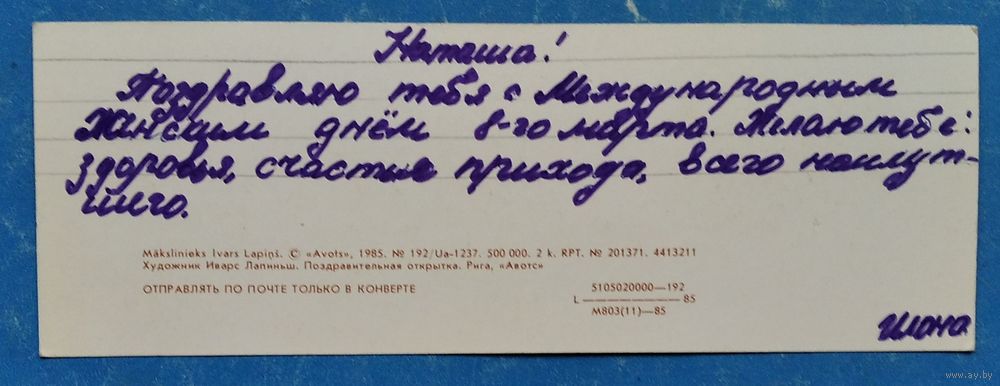 Наташа!
Поздравляю тебя с Международным
Женским днём 8-го марта. Желаю тебе:
здоровья, счастья прихода, всего наилут-
шего.
Mākslinieks Ivars Lapiņš. © «Avots», 1985. № 192/Ua-1237. 500 000. 2 k. RPT. № 201371. 4413211
Художник Иварс Лапиньш. Поздравительная открытка. Рига, «Авотс»
ОТПРАВЛЯТЬ ПО ПОЧТЕ ТОЛЬКО В КОНВЕРТЕ
5105020000—192
L ــــــ 85
M803(11)—85
Илона
www.ay.by